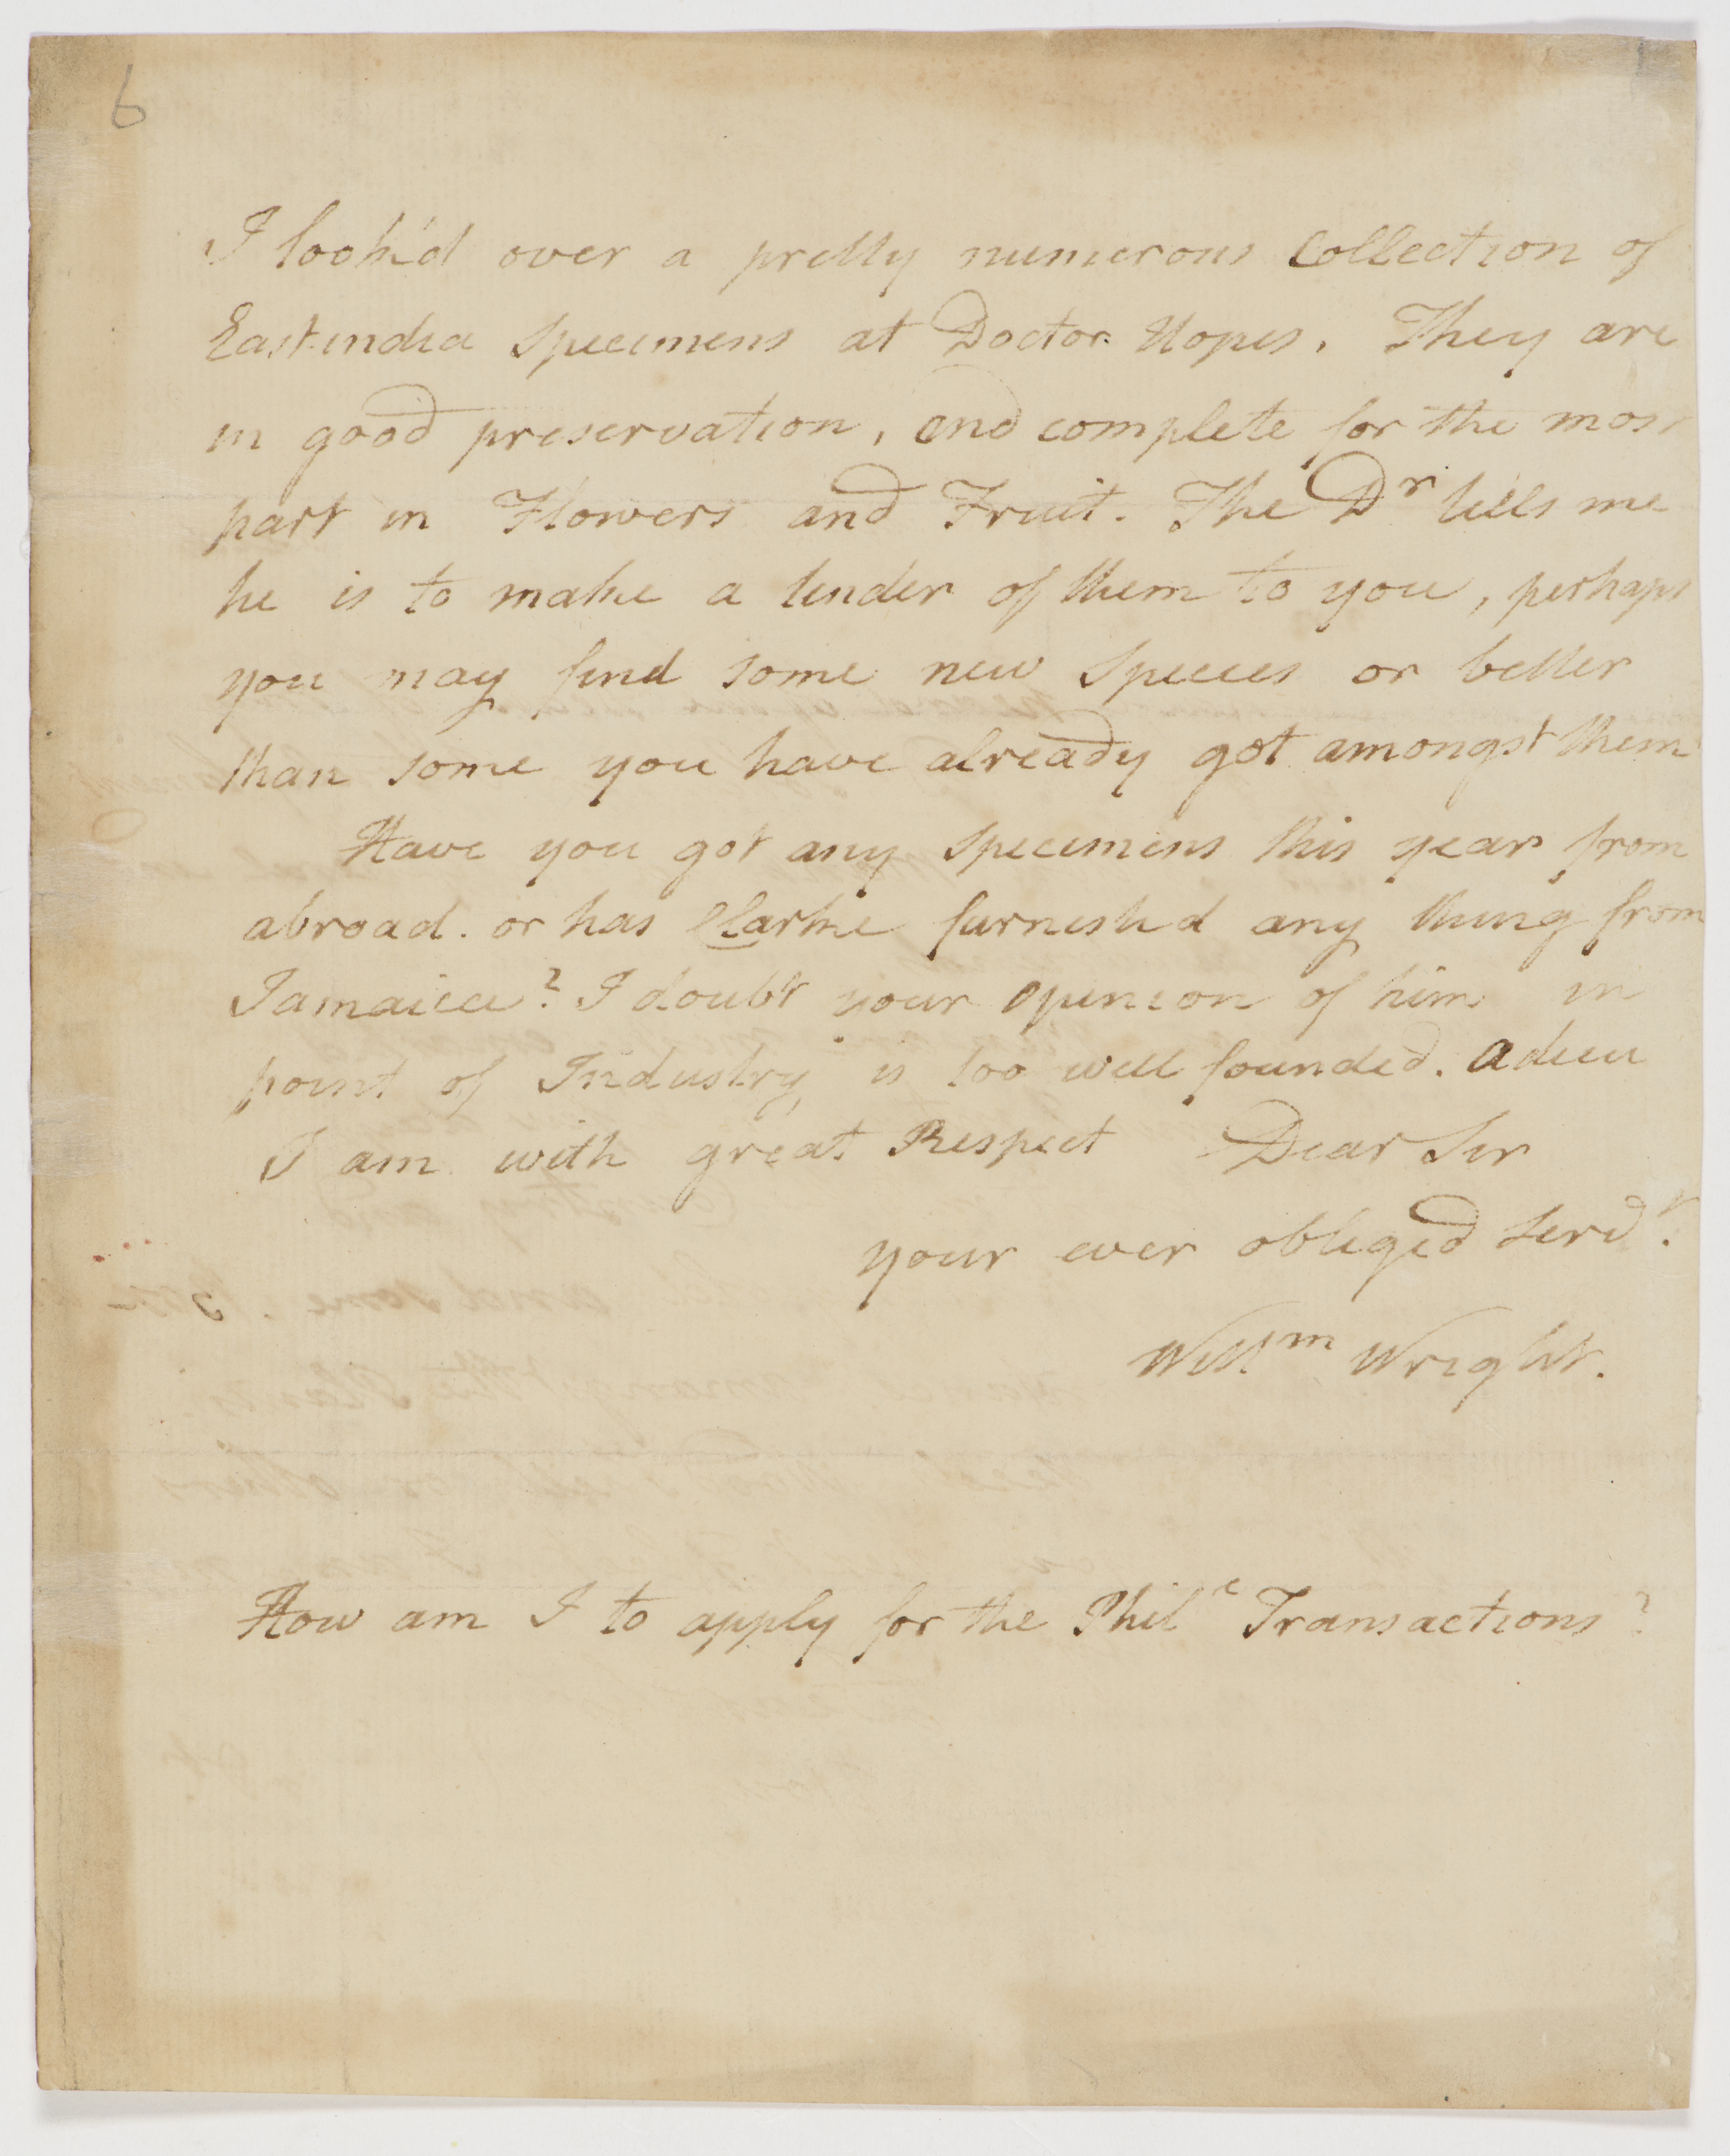 6
I look'd over a pretty numerous Collection of
East-india Specimens at Doctor Hopes. They are
in good preservation, and complete for the most
part in Flowers and Fruit. The Dr tells me
he is to make a tender of them to you, perhaps
you may find some new Species or better
than some you have already got amongst them
Have you got any Specimens this year from
abroad. or has Clarke furnish'd any thing from
Jamaica? I doubt your opinion of him in
point of Industry is too well founded. Adieu
I am with great Respect Dear Sir
your ever obliged Servt.
Willm Wright.
How am I to apply for the Philc Transactions?